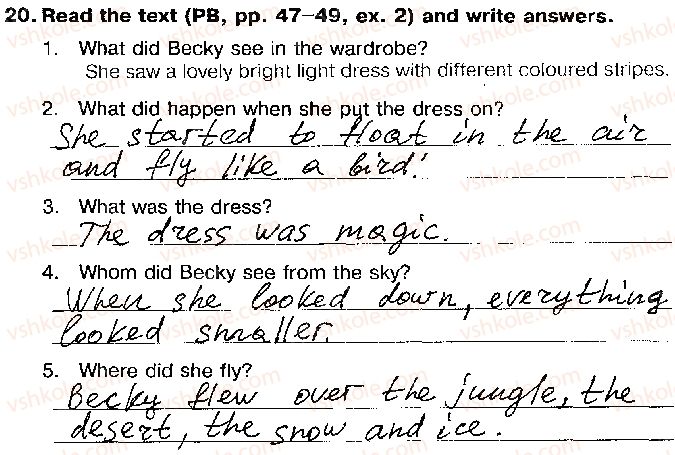 20. Read the text (PB, pp. 47–49, ex. 2) and write answers.
1. What did Becky see in the wardrobe?
She saw a lovely bright light dress with different coloured stripes.
2. What did happen when she put the dress on?
She started to float in the air
and fly like a bird!
3. What was the dress?
The dress was magic.
4. Whom did Becky see from the sky?
When she looked down, everything
looked smaller.
5. Where did she fly?
Becky flew over the jungle, the
desert, the snow and ice.